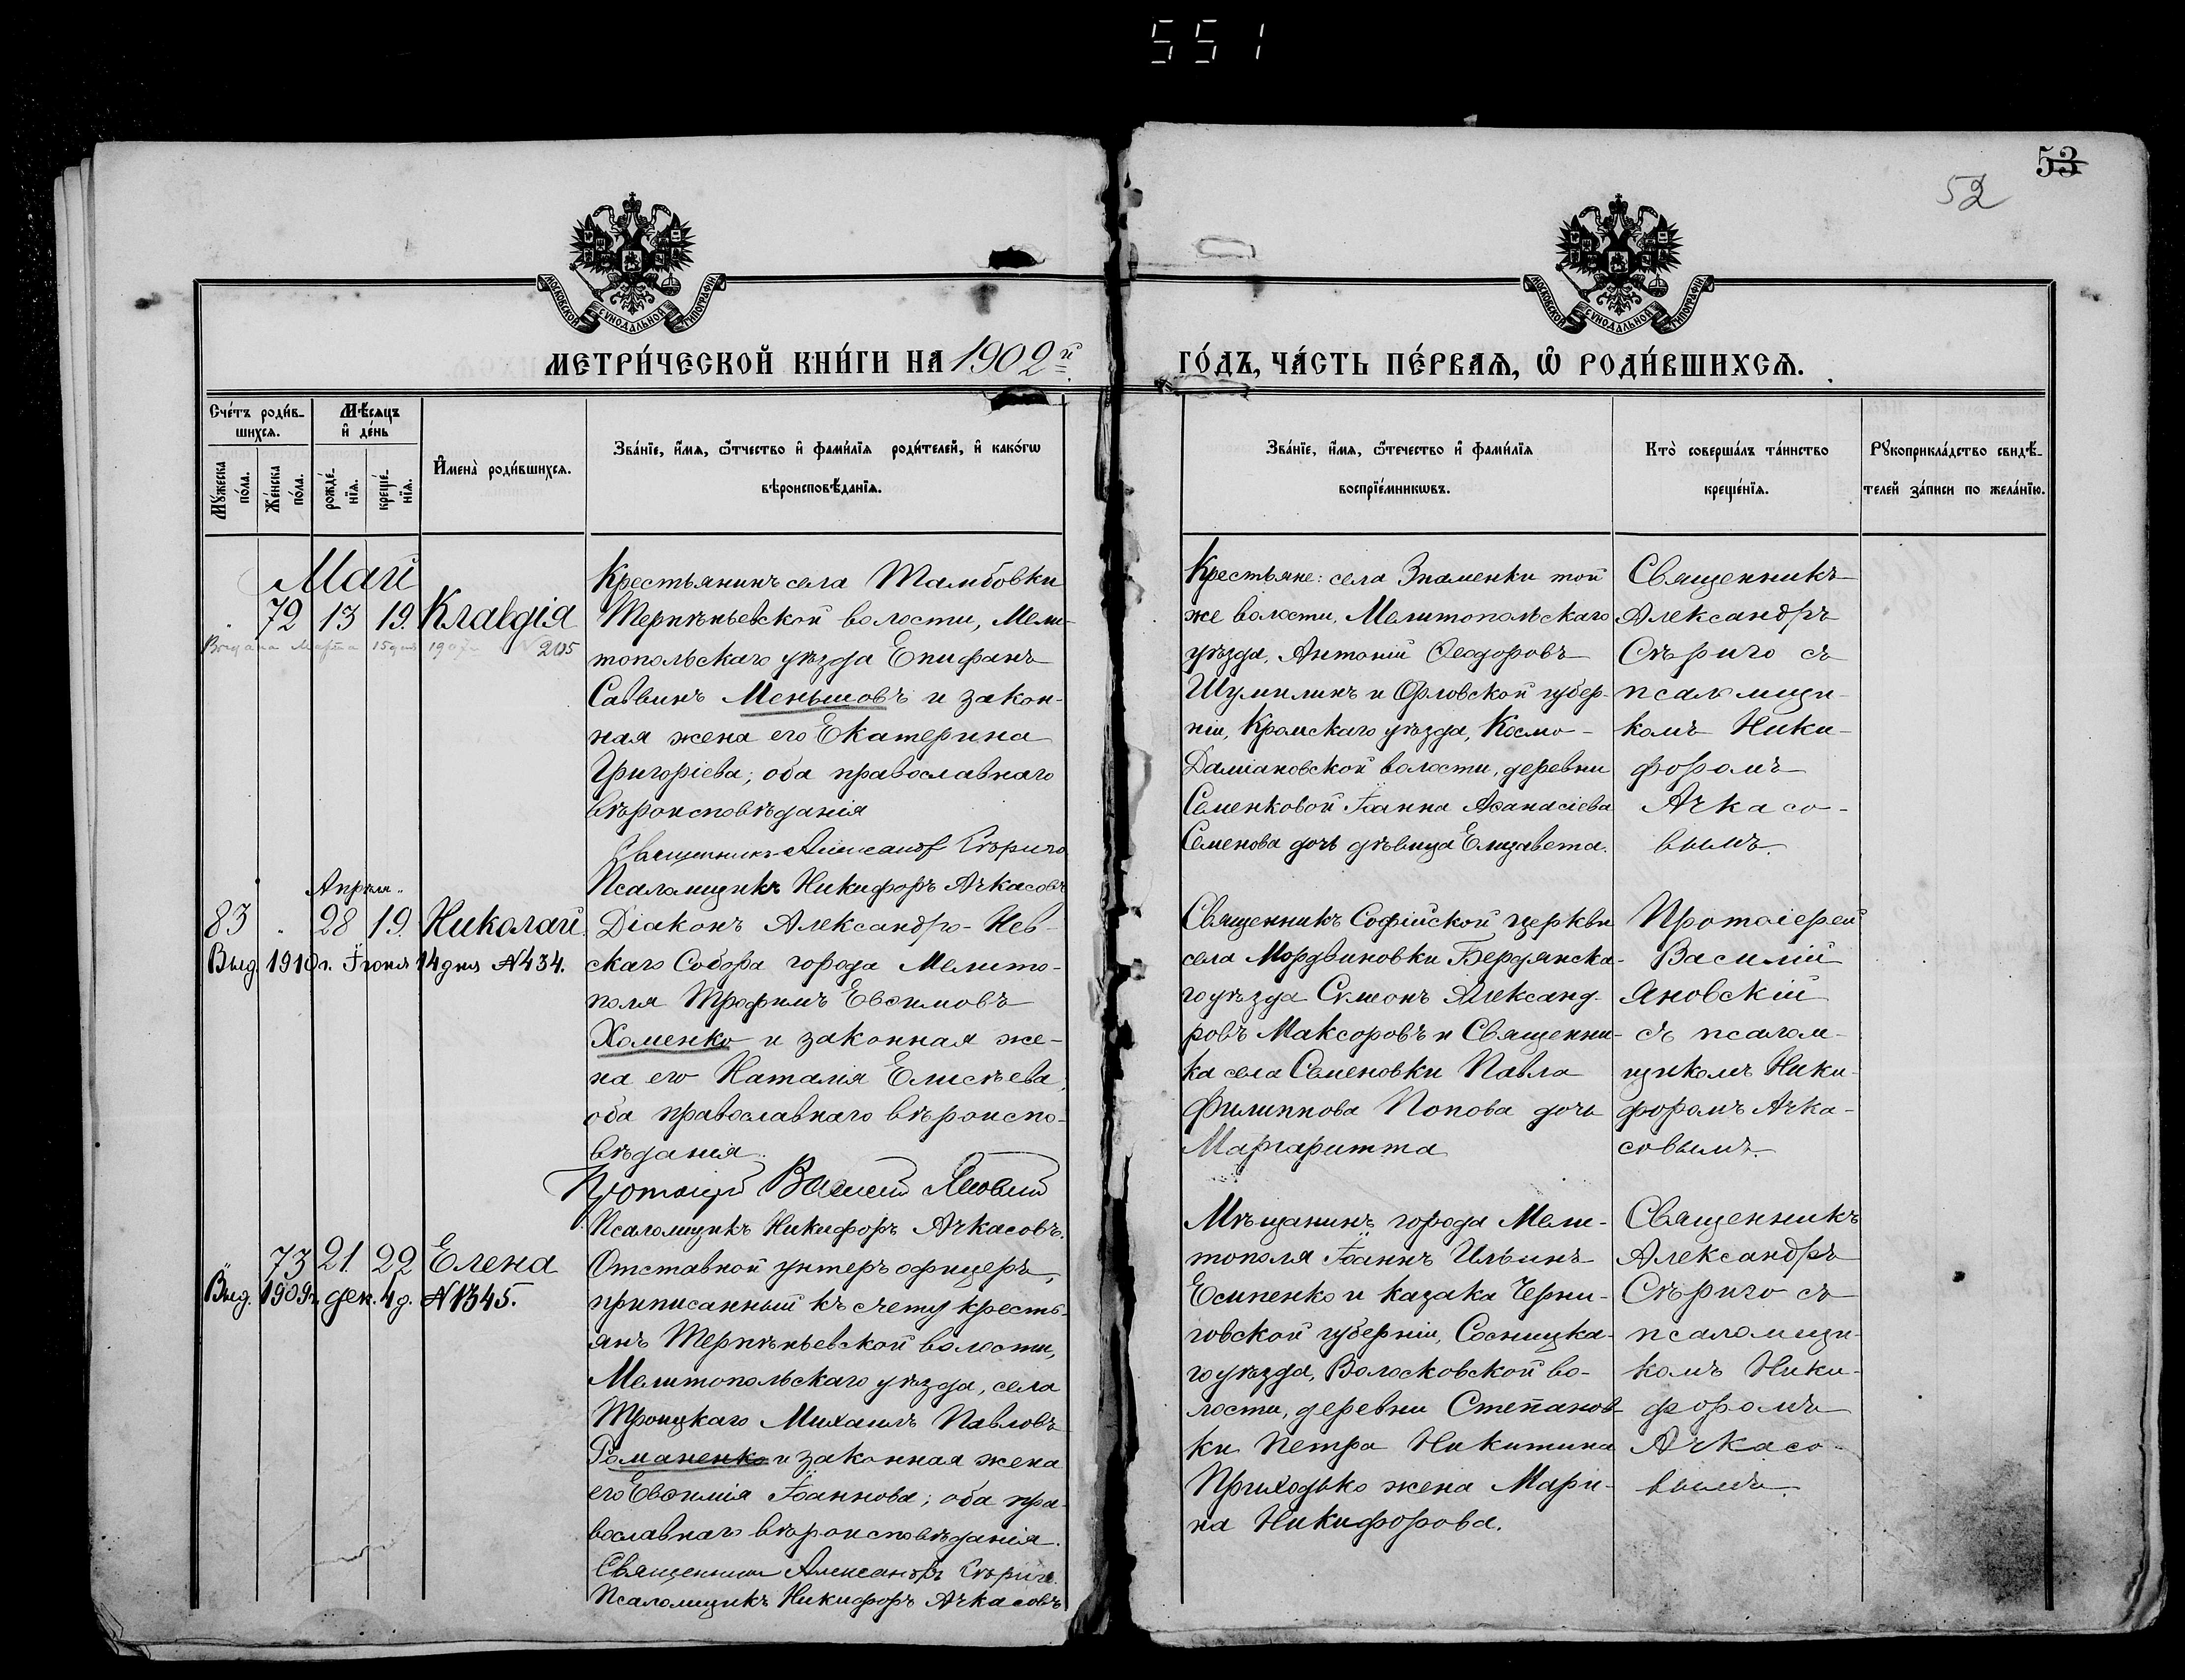 551
53
52
МОСКОВСКОЙ СѴНОДАЛЬНОЙ ТИПОГРАФІИ
МОСКОВСКОЙ СѴНОДАЛЬНОЙ ТИПОГРАФІИ
МЕТРИ́ЧЕСКОЙ КНИ́ГИ НА 1902й
ГО́ДЪ, ЧА́СТЬ ПЕ́РВАѦ, Ѽ РОДИ́ВШИХСѦ.
Сче́тъ роди́в-
шихсѧ.
Мѣ́сѧцъ
и҆ де́нь
Мꙋ́жеска
по́ла.
Же́нска
по́ла.
рожде́-
нїѧ.
креще́-
нїѧ.
И҆мена̀ роди́вшихсѧ.
Зва́нїе, и҆́мѧ, ѻ҆́тчество и҆ фами́лїѧ роди́телей, и҆ како́гѡ
вѣроисповѣ́данїѧ.
Зва́нїе, и҆́мѧ, ѻ҆́течество и҆ фами́лїѧ
воспрїе́мникѡвъ.
Кто̀ соверша́лъ та́инство
креще́нїѧ.
Рꙋкоприкла́дство свидѣ́-
телей за́писи по жела́нїю.
Май
72 13 19. Клавдія
Выдана Марта 15 дня 1907 г. № 205
Крестьянинъ села Тамбовки
Терпѣньевской волости, Мели-
топольскаго уѣзда Епифанъ
Саввинъ Меньшовъ и закон-
ная жена его Екатерина
Григоріева; оба православнаго
вѣроисповѣданія
Священникъ Александръ Сѣриго
Псаломщикъ Никифоръ Ачкасовъ
Крестьяне: села Знаменки той
же волости, Мелитопольскаго
уѣзда, Антоній Ѳеодоровъ
Шумилинъ и Орловской губер-
ніи, Кромскаго уѣзда, Космо-
Даміановской волости, деревни
Семенковой Іоанна Аѳанасіева
Семенова дочь дѣвица Елизавета.
Священникъ
Александръ
Сѣриго съ
псаломщи-
комъ Ники-
форомъ
Ачкасо-
вымъ.
Апрѣля
83 28 19. Николай.
Выд. 1910 г. Іюня 14 дня № 434.
Діаконъ Александро-Нев-
скаго Собора города Мелито-
поля Трофимъ Евѳимовъ
Хоменко и законная же-
на его Наталія Елисѣева,
оба православнаго вѣроиспо-
вѣданія.
Протоіерей Василій Яновскій
Псаломщикъ Никифоръ Ачкасовъ.
Священникъ Софійской церкви
села Мордвиновки Бердянска-
го уѣзда Симонъ Александ-
ровъ Максоровъ и Священни-
ка села Семеновки Павла
Филиппова Попова дочь
Маргаритта
Протоіерей
Василій
Яновскій
съ псалом-
щикомъ Ники-
форомъ Ачка-
совымъ.
73 21 22 Елена
Выд. 1909 г. дек. 4 д. № 1345.
Отставной унтеръ офицеръ,
приписанный къ счету кресть-
янъ Терпѣньевской волости,
Мелитопольскаго уѣзда, села
Троицкаго Михаилъ Павловъ
Романенко и законная жена
его Евѳимія Іоаннова; оба пра-
вославнаго вѣроисповѣданія.
Священникъ Александръ Сѣриго.
Псаломщикъ Никифоръ Ачкасовъ
Мѣщанинъ города Мели-
тополя Іоаннъ Ильинъ
Есипенко и казака Черни-
говской губерніи, Сосницка-
го уѣзда, Волосковской во-
лости, деревни Степанов-
ки Петра Никитина
Приходько жена Мари-
на Никифорова.
Священникъ
Александръ
Сѣриго съ
псаломщи-
комъ Ники-
форомъ
Ачкасо-
вымъ.